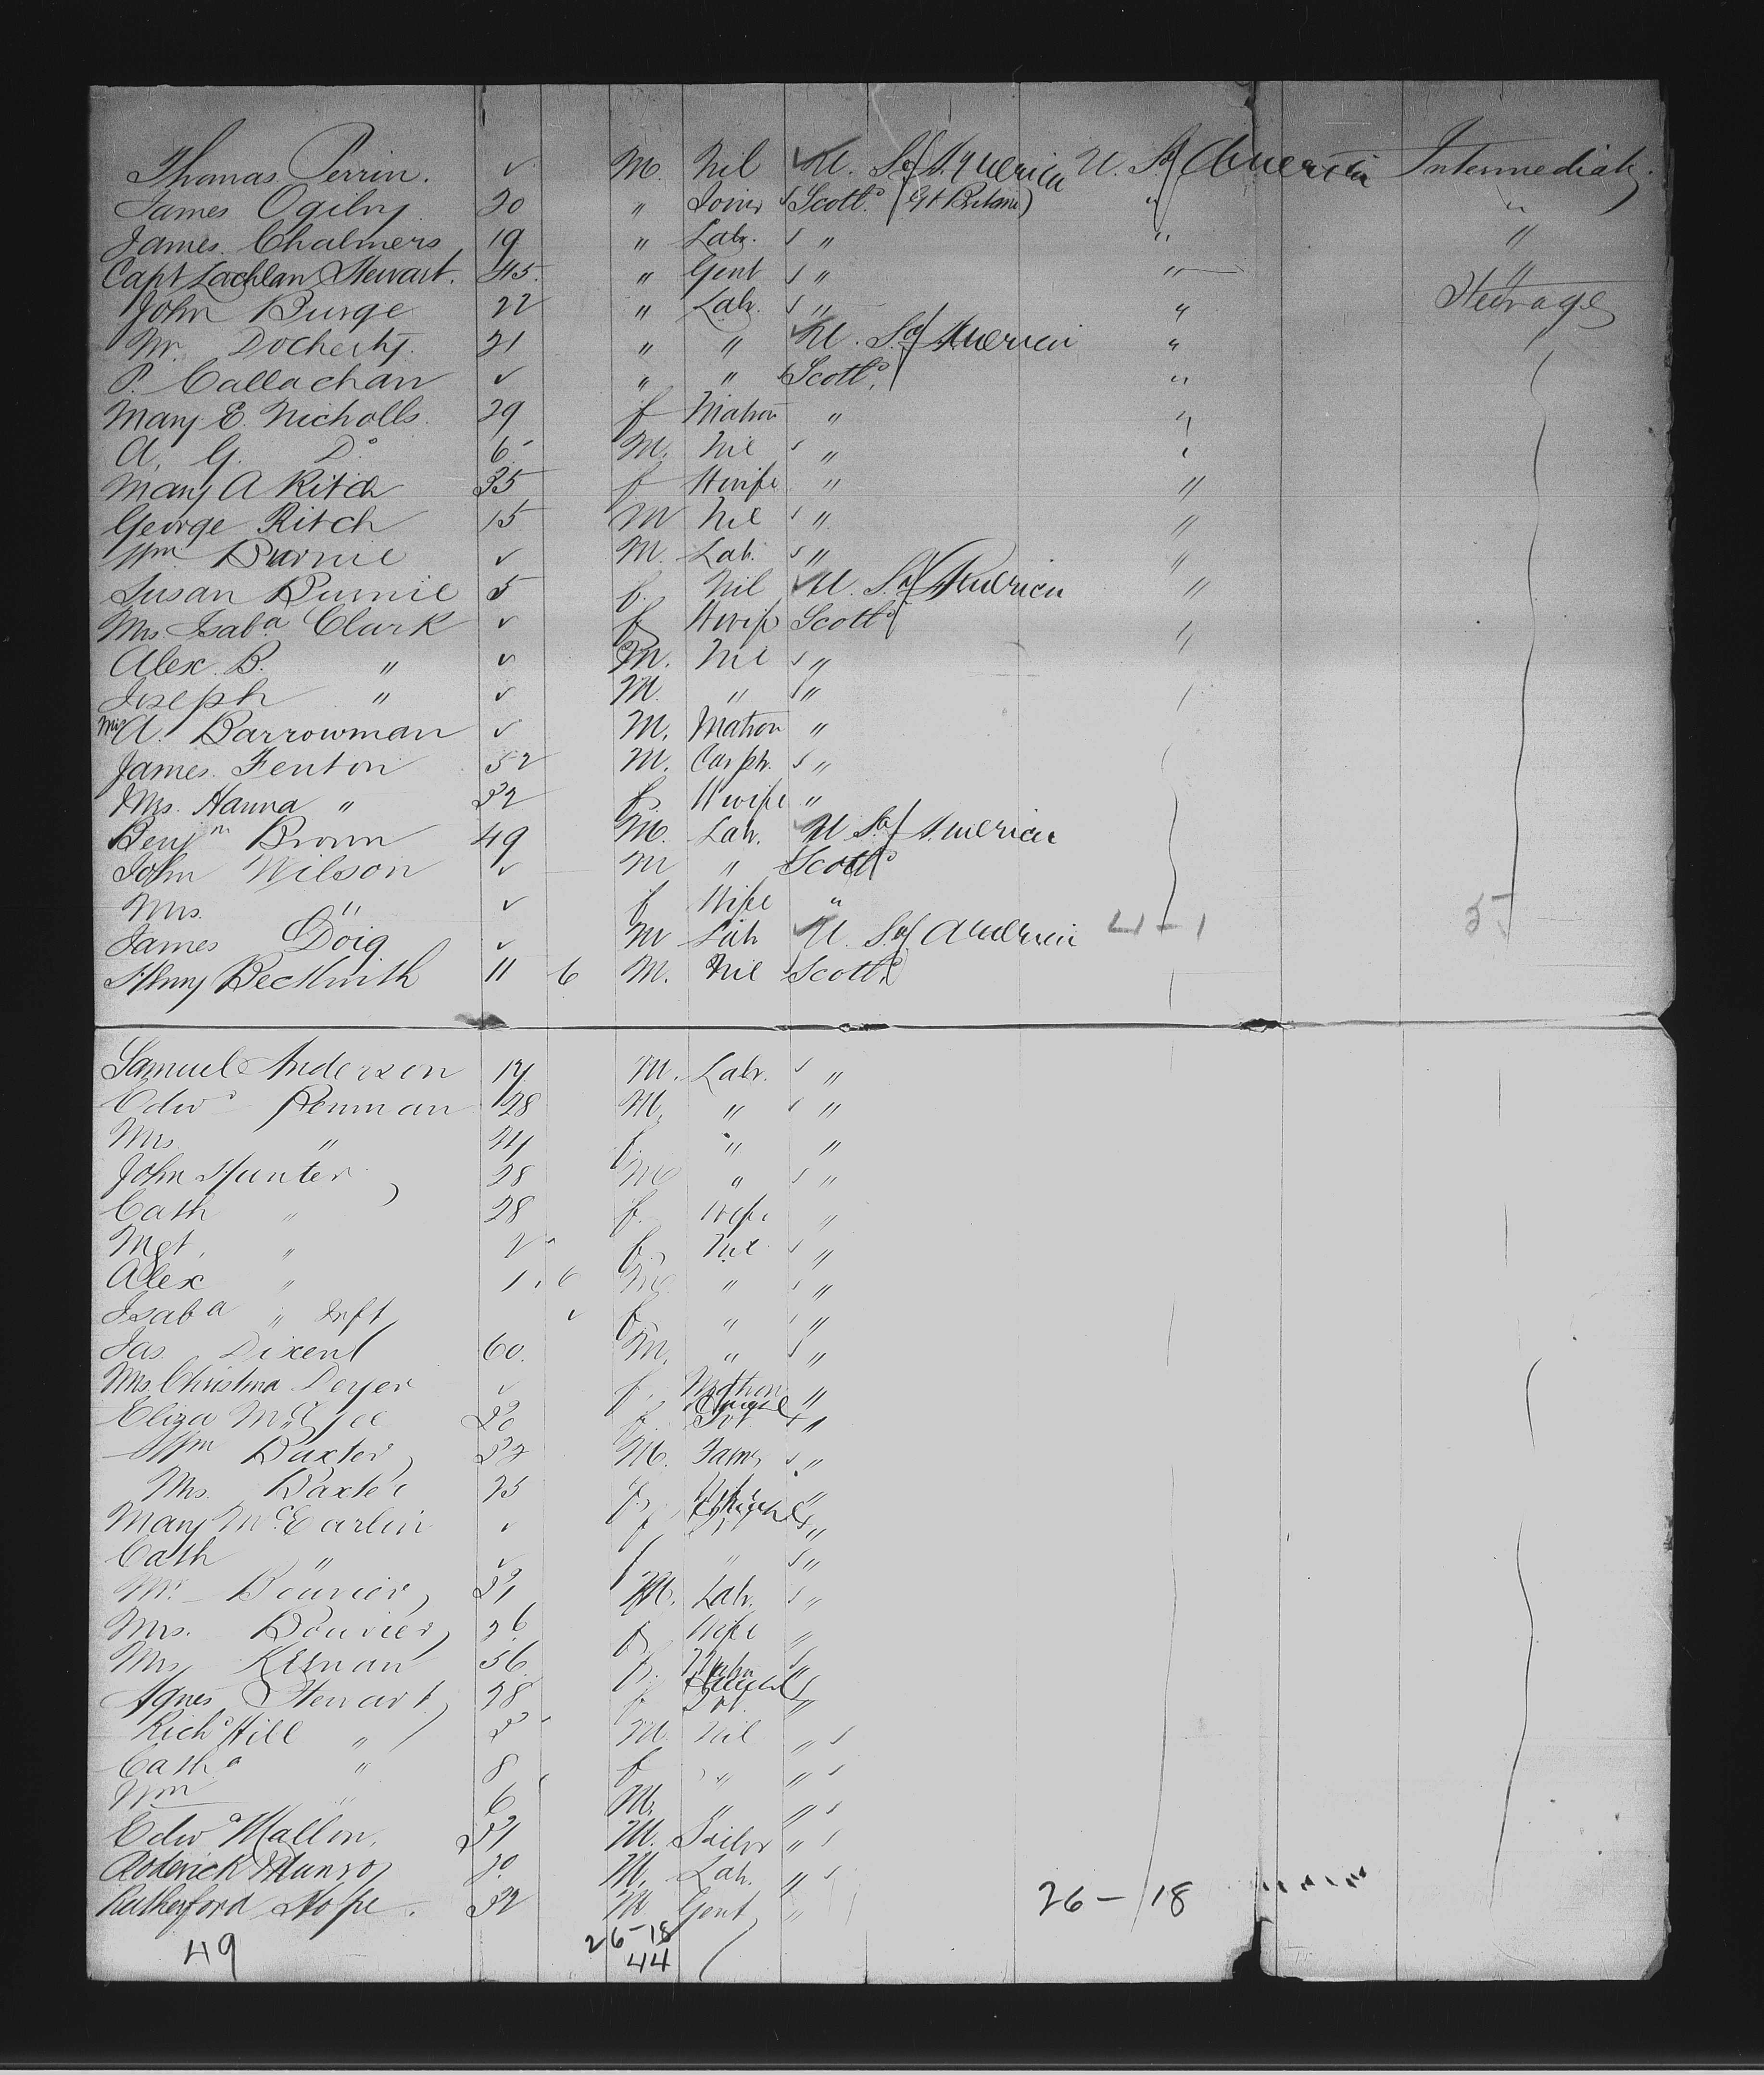 Thomas Perrin. ✓ M. Nil U. S. of America U. S. of America Intermediate.
James Ogilvy 20 " Joiner Scotld (Gt Britain) " "
James Chalmers 19 " Labr. " " "
Capt Lachlan Stewart. 45 " Gent " " "
John Burge 22 " Labr. " " Steerage
Mr. Docherty. 21 " " U. S. of America "
P. Callachan ✓ " " Scotld. "
Mary E. Nicholls. 29 f Matron " "
A. G. Do. 6 M. Nil " "
Mary A Ritch 35 f Hwife " "
George Ritch 15 M Nil " "
Wm Burnie ✓ M. Lab. " "
Susan Burnie 5 f. Nil U. S. of America "
Mrs. Isaba Clark ✓ f Hwife Scotld "
Alex. B. " ✓ M. Nil "
Joseph " ✓ M. " "
Mrs A. Barrowman ✓ M. Matron "
James. Fenton 52 M. Carptr. "
Mrs. Hanna " 32 f Hwife "
Benjn Brown 49 M. Lab. U S. of America
John Wilson ✓ M " Scotld
Mrs. " ✓ f Wife "
James Doig ✓ M Lab U. S. of America 4-1 5
Henry Beckwith 11 6 M. Nil Scotld.
Samuel Anderson 17 M. Labr. "
Edwd Penman 28 M. " "
Mrs. " 24 f. " "
John Hunter 28 M " "
Cath " 28 f. Wife "
Mgt. " 2 f. Nil "
Alex " 1. 6 M " "
Isaba " Inft ✓ f. " "
Jas. 60. M. " "
Mrs. Christina ✓ f. Matron "
Eliza 30 f. "
Wm Baxter 32 M. Farmr "
Mrs. Baxter 25 f. Wife "
Mary ✓ f "
Cath " ✓ f " "
Mr. Bouvier 31 M. Lab. "
Mrs. Bouvier 26 f Wife "
Mrs Keenan 56 f. Matn "
Agnes Stewart 28 f "
Richd Hill " 3 M Nil "
Catha " 8 f " "
Wm " 6 M. " "
Edwd Mallon. 31 M. Sailor "
Roderick Munro 30 M. Lab. "
Rutherford Hope. 32 M Gent " 26 - 18
49 26-18
44